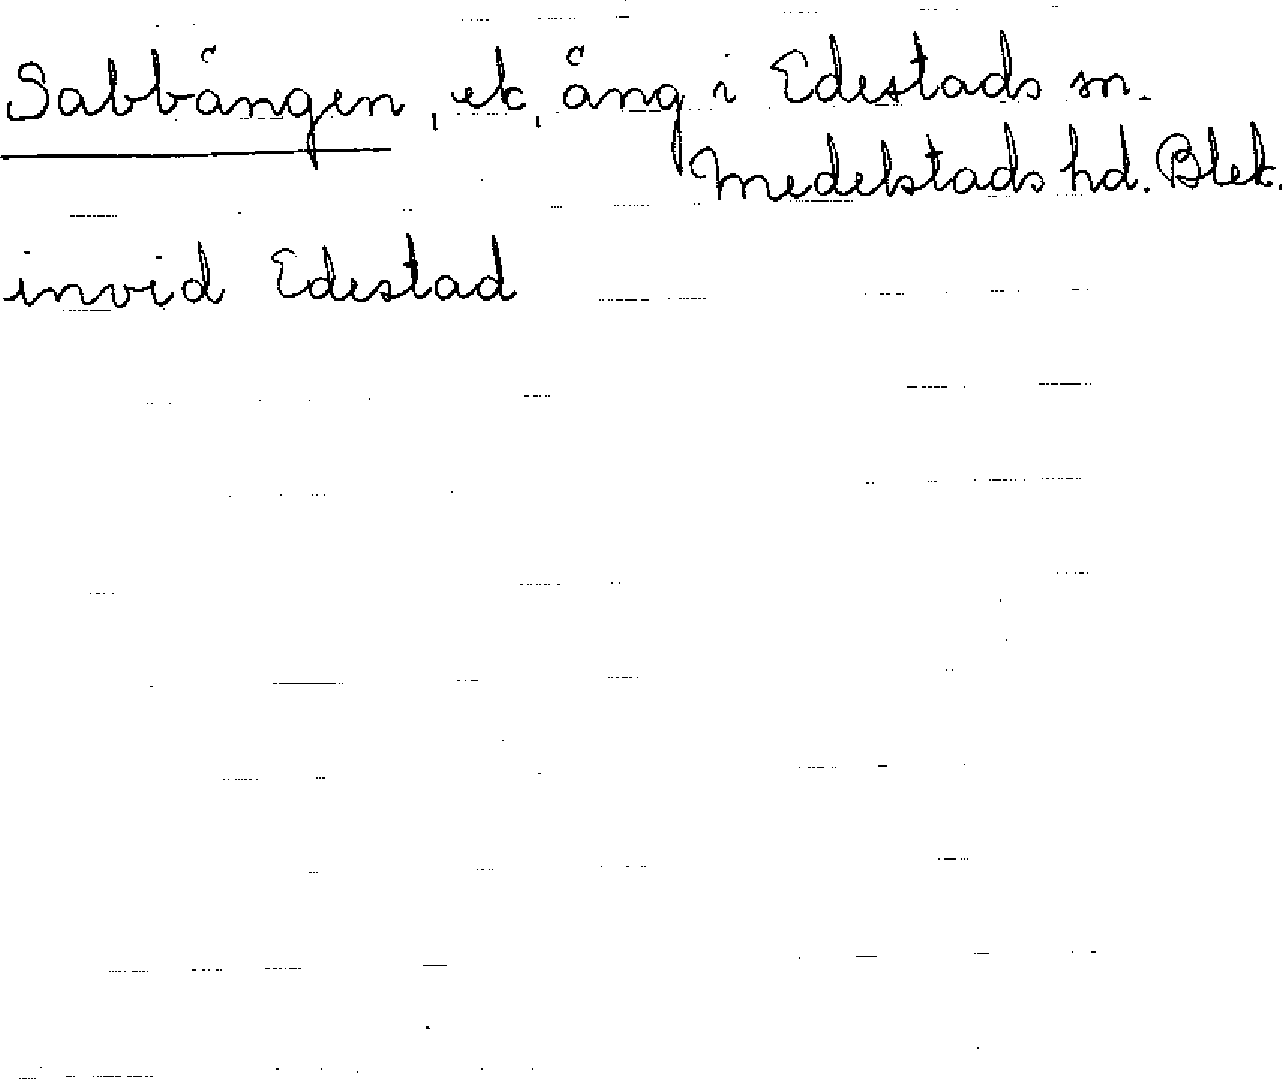 Sabbängen, ek, äng i Edestads sn.
Medelstads hd. Blek.
invid Edestad